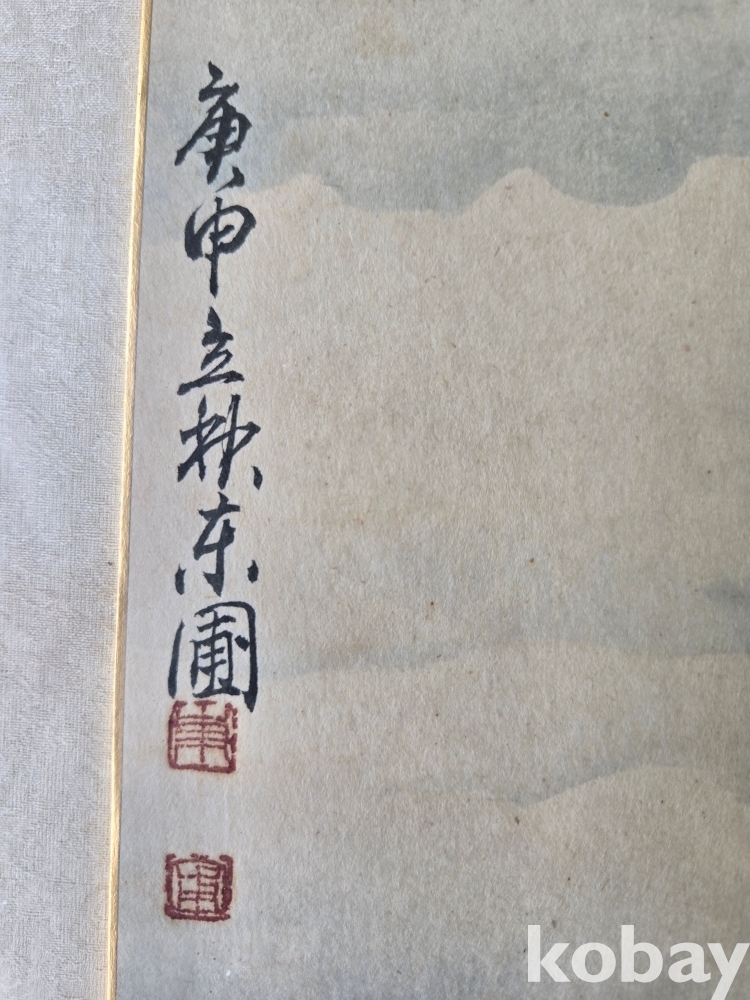 庚申立秋东圃
kobay